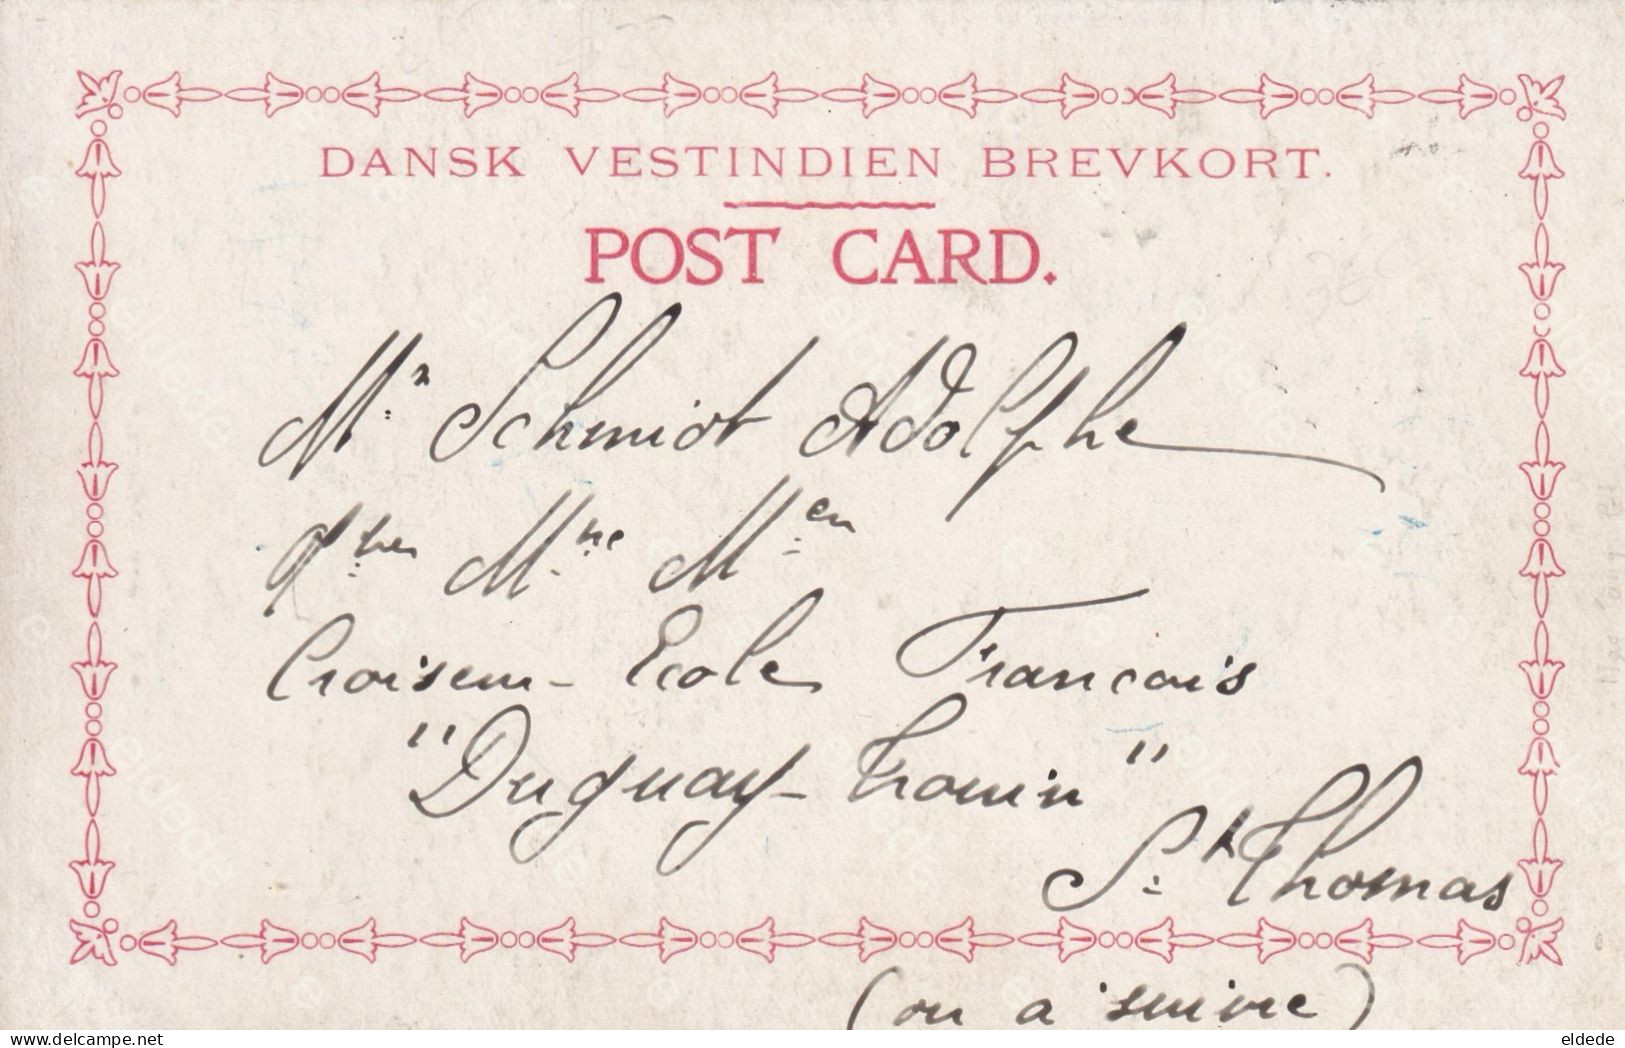 DANSK VESTINDIEN BREVKORT.
POST CARD.
Mr Schmidt Adolphe
Qtier Mtre Mcien
Croiseur-Ecole Francais
"Duguay-Trouin"
St Thomas
(ou a suivre)
eldede